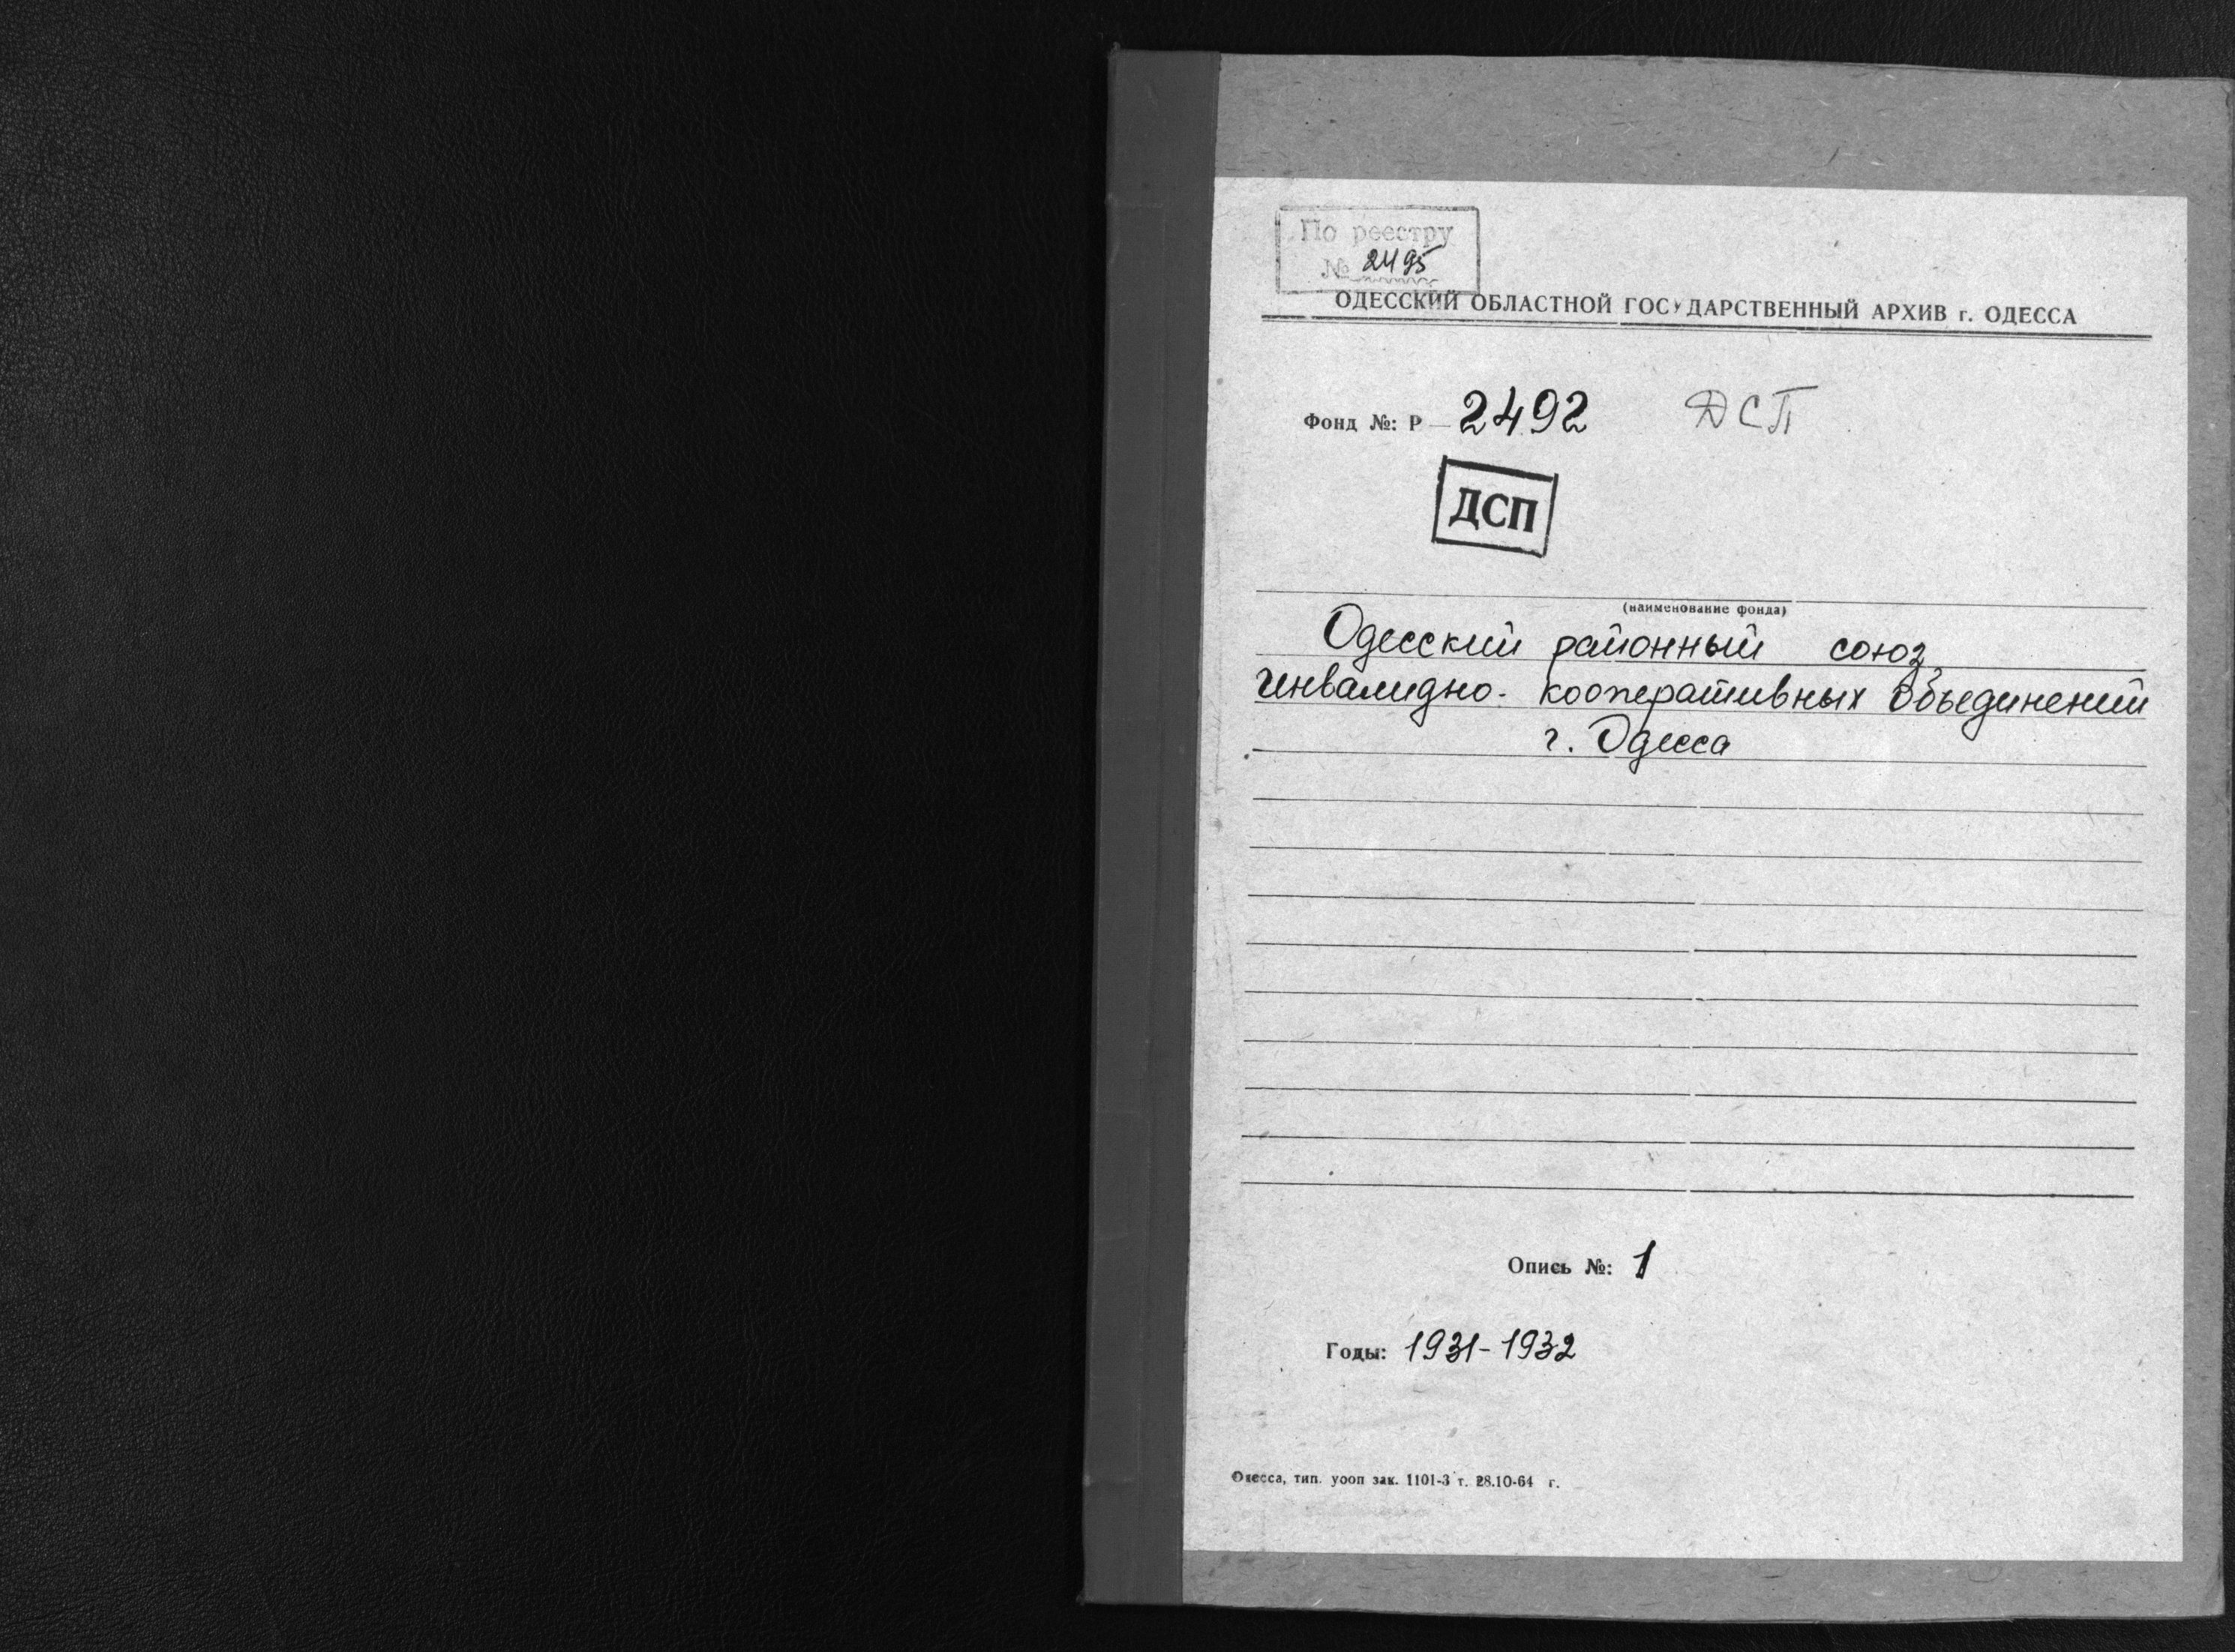 По реестру
№ 2495
ОДЕССКИЙ ОБЛАСТНОЙ ГОСУДАРСТВЕННЫЙ АРХИВ г. ОДЕССА
Фонд №: Р — 2492 ДСП
ДСП
(наименование фонда)
Одесский районный союз
инвалидно-кооперативных объединений
г. Одесса
Опись №: 1
Годы: 1931-1932
Одесса, тип. уооп зак. 1101-3 т. 28.10-64 г.